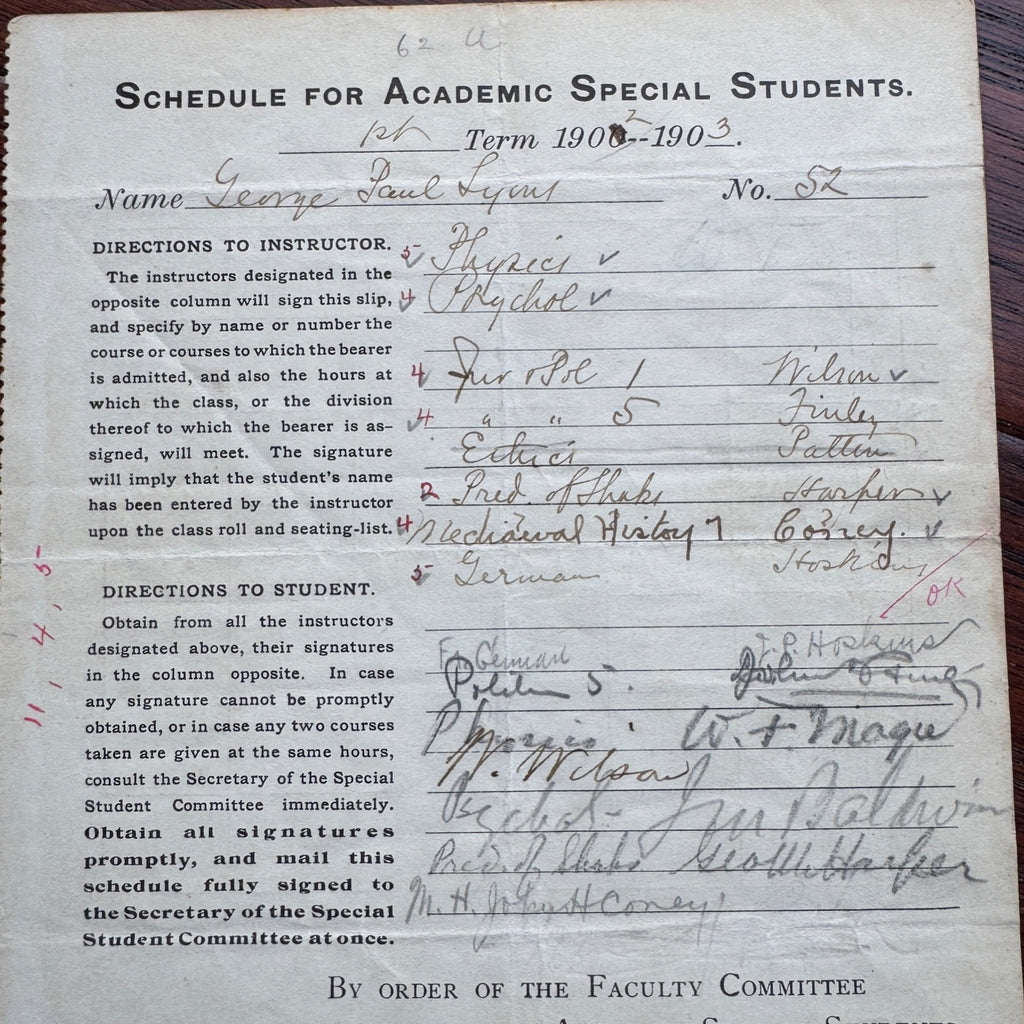 62 a
SCHEDULE FOR ACADEMIC SPECIAL STUDENTS.
1st Term 1902--1903.
Name George Paul Lyons No. 52
DIRECTIONS TO INSTRUCTOR.
The instructors designated in the
opposite column will sign this slip,
and specify by name or number the
course or courses to which the bearer
is admitted, and also the hours at
which the class, or the division
thereof to which the bearer is as-
signed, will meet. The signature
will imply that the student's name
has been entered by the instructor
upon the class roll and seating-list.
DIRECTIONS TO STUDENT.
Obtain from all the instructors
designated above, their signatures
in the column opposite. In case
any signature cannot be promptly
obtained, or in case any two courses
taken are given at the same hours,
consult the Secretary of the Special
Student Committee immediately.
Obtain all signatures
promptly, and mail this
schedule fully signed to
the Secretary of the Special
Student Committee at once.
11, 4, 5
5 Physics ✓
4 Psychol ✓
4 Jur & Pol 1 Wilson ✓
4 " " 5 Finley
Ethics Patton
2 Pred. of Shaks Harper ✓
4 Mediaeval History 7 Coney. ✓
5 German Hoskins
OK
German J. P. Hoskins
Politics 5. John Finley
Physics W. F. Magie
W. Wilson
Psychol- J M Baldwin
Pred. of Shaks Geo M Harper
M. H. John H Coney
BY ORDER OF THE FACULTY COMMITTEE